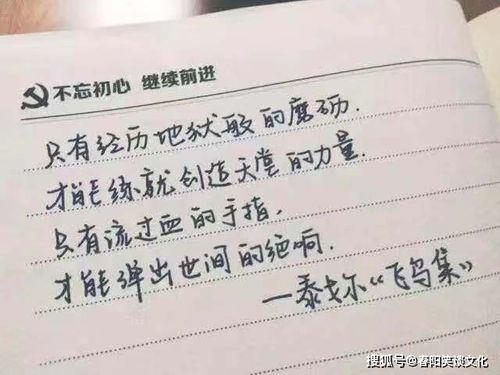 不忘初心 继续前进
只有经历地狱般的磨砺.
才能练就创造天堂的力量.
只有流过血的手指.
才能弹出世间的绝响.
—泰戈尔《飞鸟集》
搜狐号@春阳笑谈文化